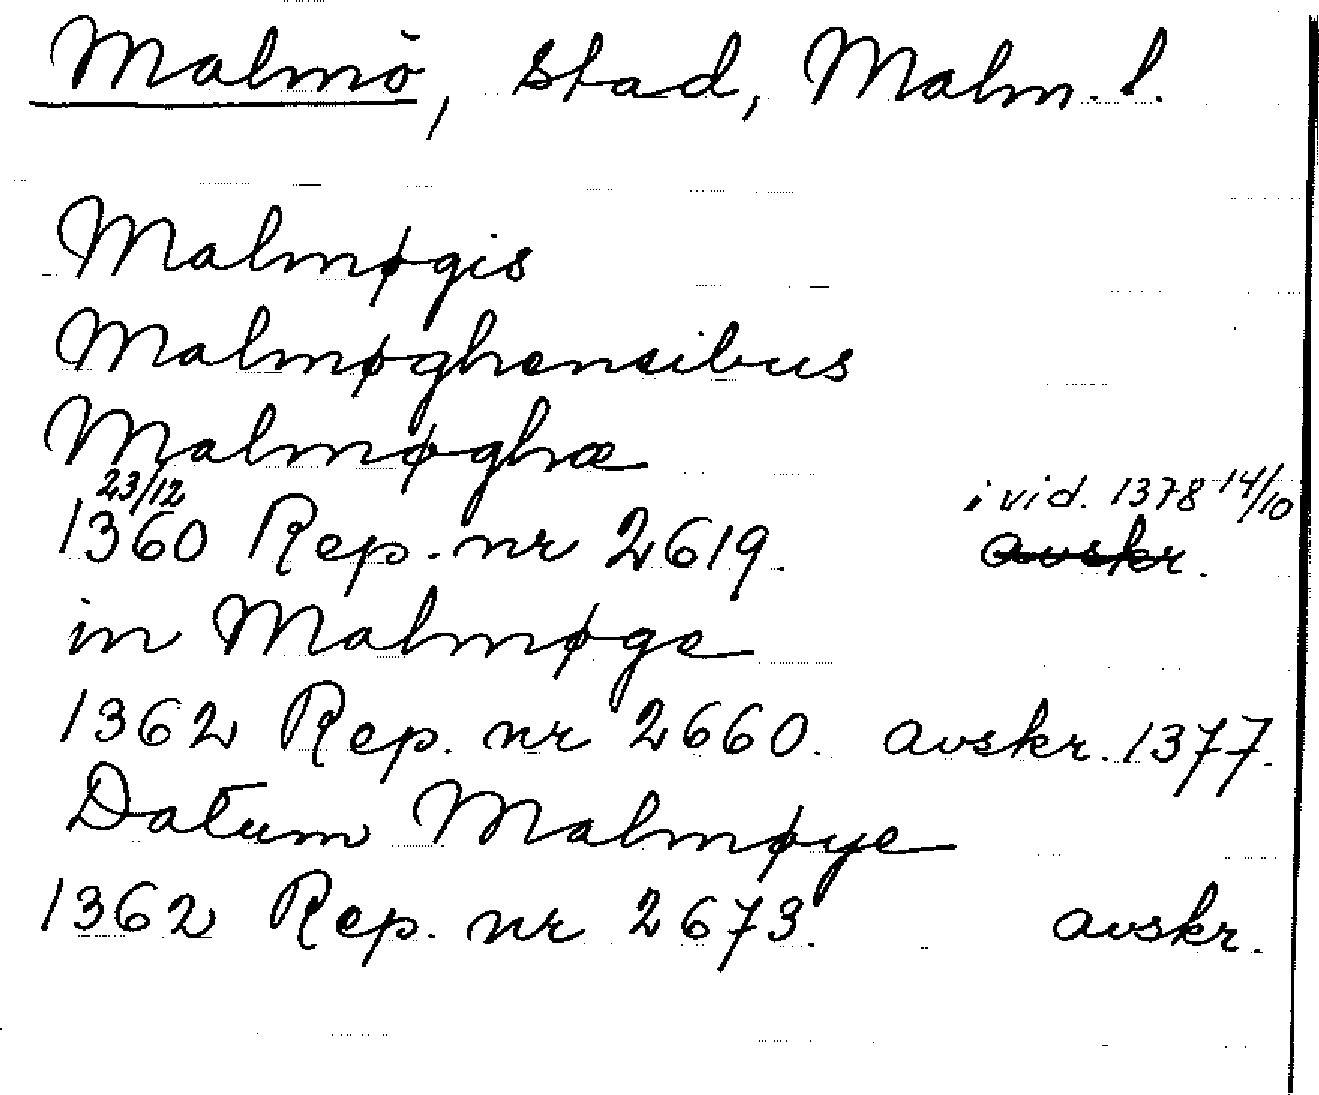 Malmö, stad, Malm. l.
Malmøgis
Malmøghensibus
Malmøghæ
23/12 i vid. 1378 14/10
1360 Rep. nr 2619. avskr.
in Malmøge
1362 Rep. nr 2660. avskr. 1377.
Datum Malmøye
1362 Rep. nr 2673. avskr.